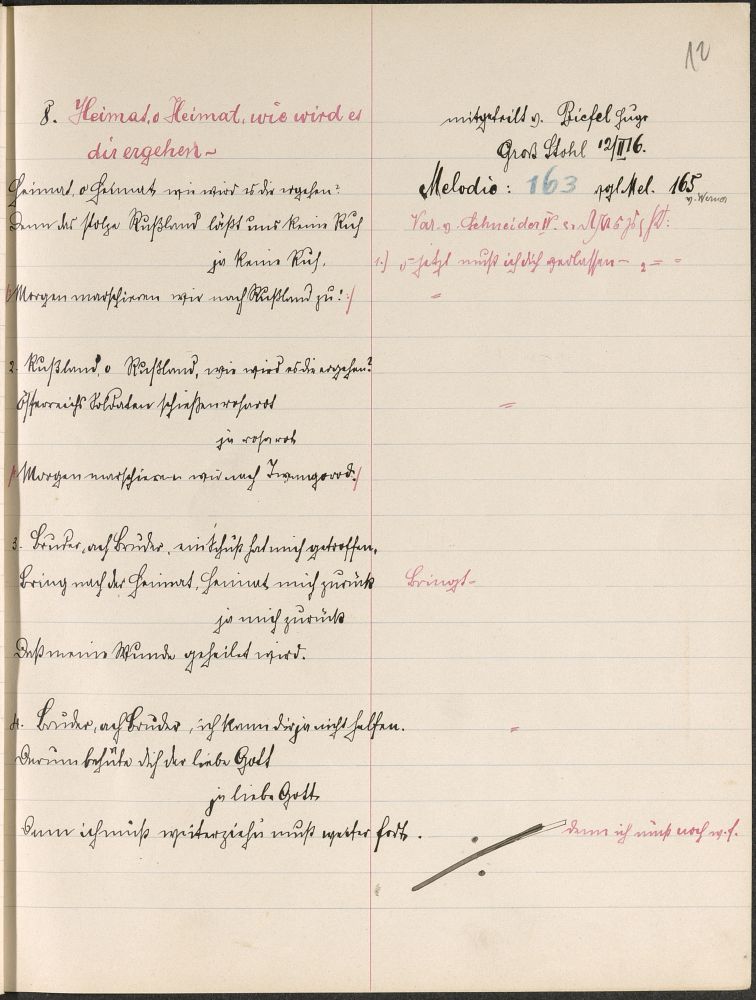 12
8. Heimat, o Heimat, wie wird es
dir ergehen ~
mitgeteilt v. Biefel Hugo
Groß Stohl 12/II 16.
Melodie: 163 vgl. Mel. 165
v. Werner
Var. v. Schneider IV.
1.) o jetzt muß ich dich verlassen –
Heimat, o Heimat wie wird es dir ergehen?
Denn das stolze Rußland läßt uns keine Ruh
ja keine Ruh,
/: Morgen marschieren wir nach Rußland zu! :/
2. Rußland, o Rußland, wie wird es dir ergehen?
Österreichs Soldaten schießen rosarot
ja rosarot
/: Morgen marschieren wir nach Iwangorod :/
3. Bruder, ach Bruder, ein Schuß hat mich getroffen,
Bring nach der Heimat, Heimat mich zurück
Bringt –
ja mich zurück
Daß meine Wunde geheilet wird.
4. Bruder, ach Bruder, ich kann dir ja nicht helfen.
Darum behüte dich der liebe Gott
ja liebe Gott
Denn ich muß weiterziehn muß weiter fort.
denn ich muß noch w. f.